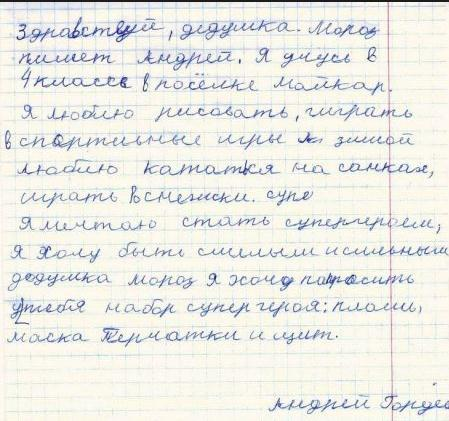 Здравствуй, дедушка. Мороз
пишет Андрей. Я учусь в
4 классе в посёлке Майкар.
Я люблю рисовать, играть
в спортивные игры зимой
люблю кататься на санках,
играть в снежски. супе
Я мечтаю стать супергероем,
я хочу быть смелым и сильным
дедушка мороз я хочу попросить
у тебя набор супергероя: плащ,
маска перчатки и щит.
Андрей